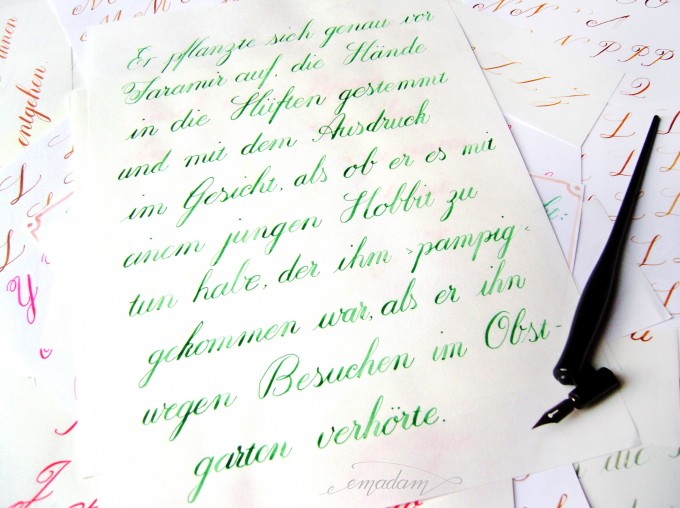 Er pflanzte sich genau vor
Faramir auf, die Hände
in die Hüften gestemmt
und mit dem Ausdruck
im Gesicht, als ob er es mit
einem jungen Hobbit zu
tun habe, der ihm >pampig<
gekommen war, als er ihn
wegen Besuchen im Obst-
garten verhörte.
emadam
ihnen
entgehen.